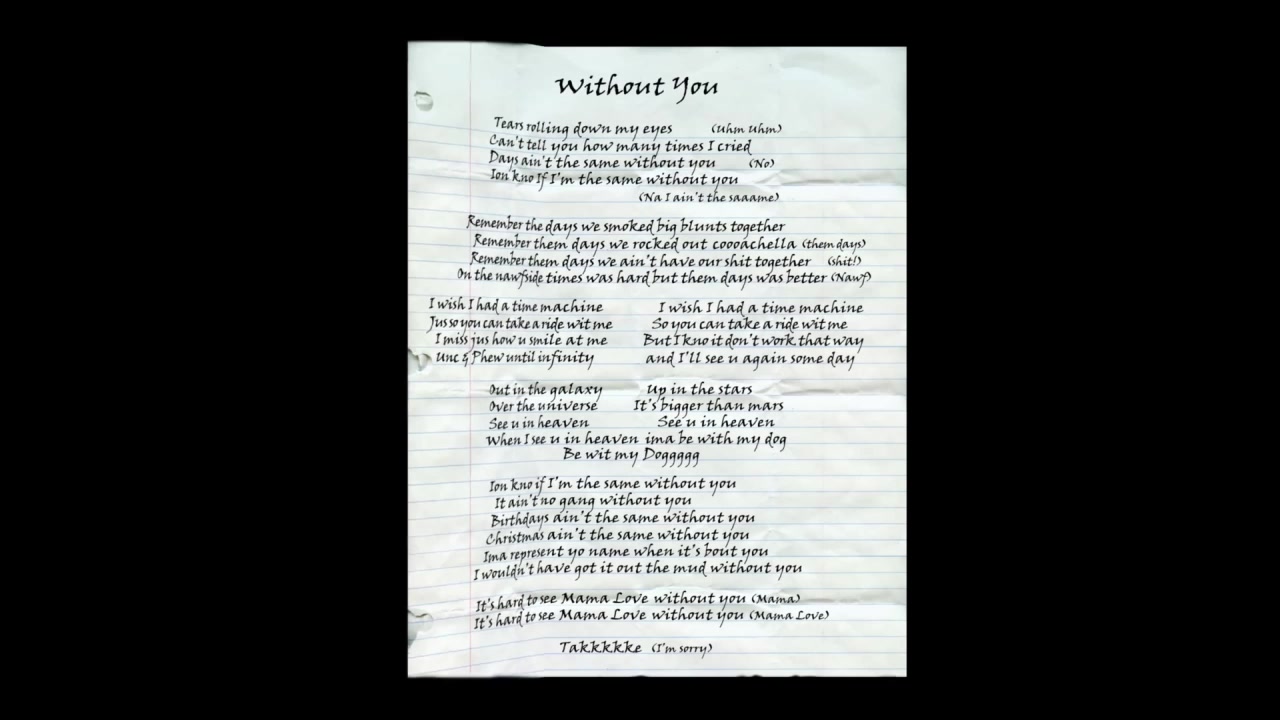 Without You
Tears rolling down my eyes (Uhm Uhm)
Can't tell you how many times I cried
Days ain't the same without you (No)
Ion kno If I'm the same without you
(Na I ain't the saaame)
Remember the days we smoked big blunts together
Remember them days we rocked out coooachella (them days)
Remember them days we ain't have our shit together (shit!)
On the nawfside times was hard but them days was better (Nawf)
I wish I had a time machine
Jus so you can take a ride wit me
I miss jus how u smile at me
Unc & Phew until infinity
I wish I had a time machine
So you can take a ride wit me
But I kno it don't work that way
and I'll see u again some day
Out in the galaxy
Over the universe
See u in heaven
Up in the stars
It's bigger than mars
See u in heaven
When I see u in heaven ima be with my dog
Be wit my Doggggg
Ion kno if I'm the same without you
It ain't no gang without you
Birthdays ain't the same without you
Christmas ain't the same without you
Ima represent yo name when it's bout you
I wouldn't have got it out the mud without you
It's hard to see Mama Love without you (Mama)
It's hard to see Mama Love without you (Mama Love)
Takkkkke (I'm sorry)